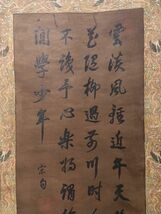 雲淡風輕近午天
花隨柳過前川時
不識予心樂將謂
閒學少年
宋句